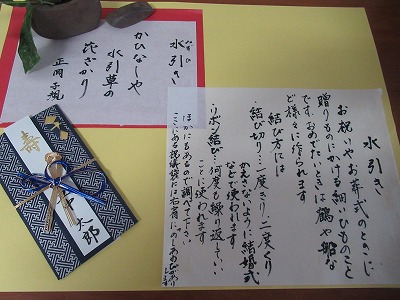 みずひき
水引き
かひなしや
水引草の
花ざかり
正岡子規
寿
太郎
水引き
お祝いやお葬式のときに
贈りものにかける細いひものこと
です。おめでたいときは鶴や船な
ど様々に作られます。
結び方には
・結び切り…一度きり、二度くり
かえさないように結婚式
などで使われます。
・リボン結び…何度も繰り返していい
ことに使われます。
ほかにもあるので調べて下さい
ここにある祝儀袋には右肩に「のし」あわびがあり
ます